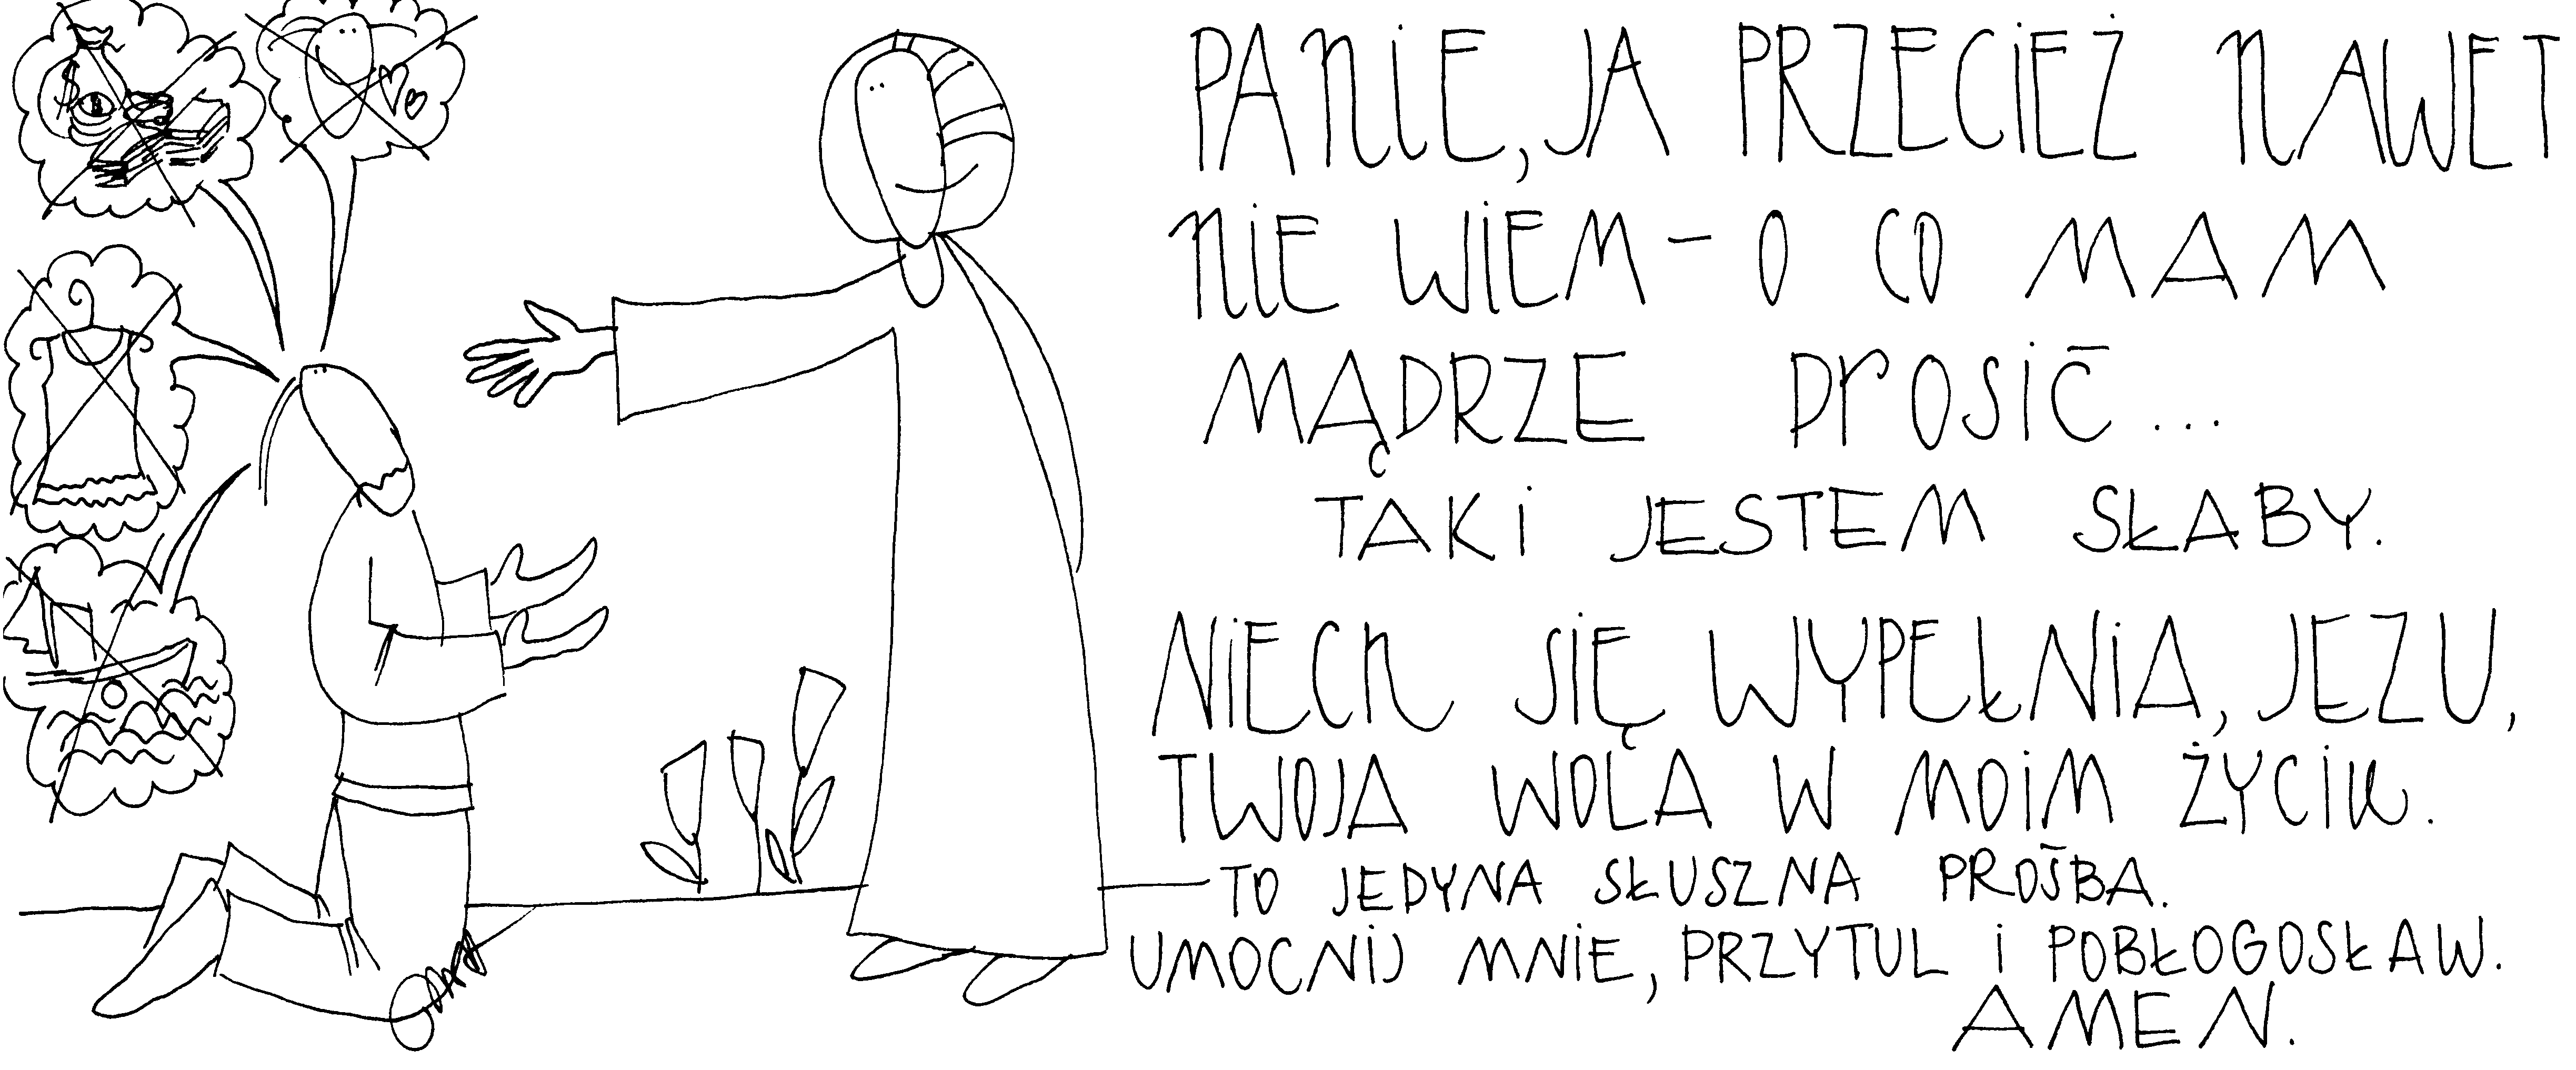 PANIE, JA PRZECIEŻ NAWET
NIE WIEM - O CO MAM
MĄDRZE PROSIĆ...
TAKI JESTEM SŁABY.
NIECH SIĘ WYPEŁNIA, JEZU,
TWOJA WOLA W MOIM ŻYCIU.
TO JEDYNA SŁUSZNA PROŚBA.
UMOCNIJ MNIE, PRZYTUL I POBŁOGOSŁAW.
AMEN.